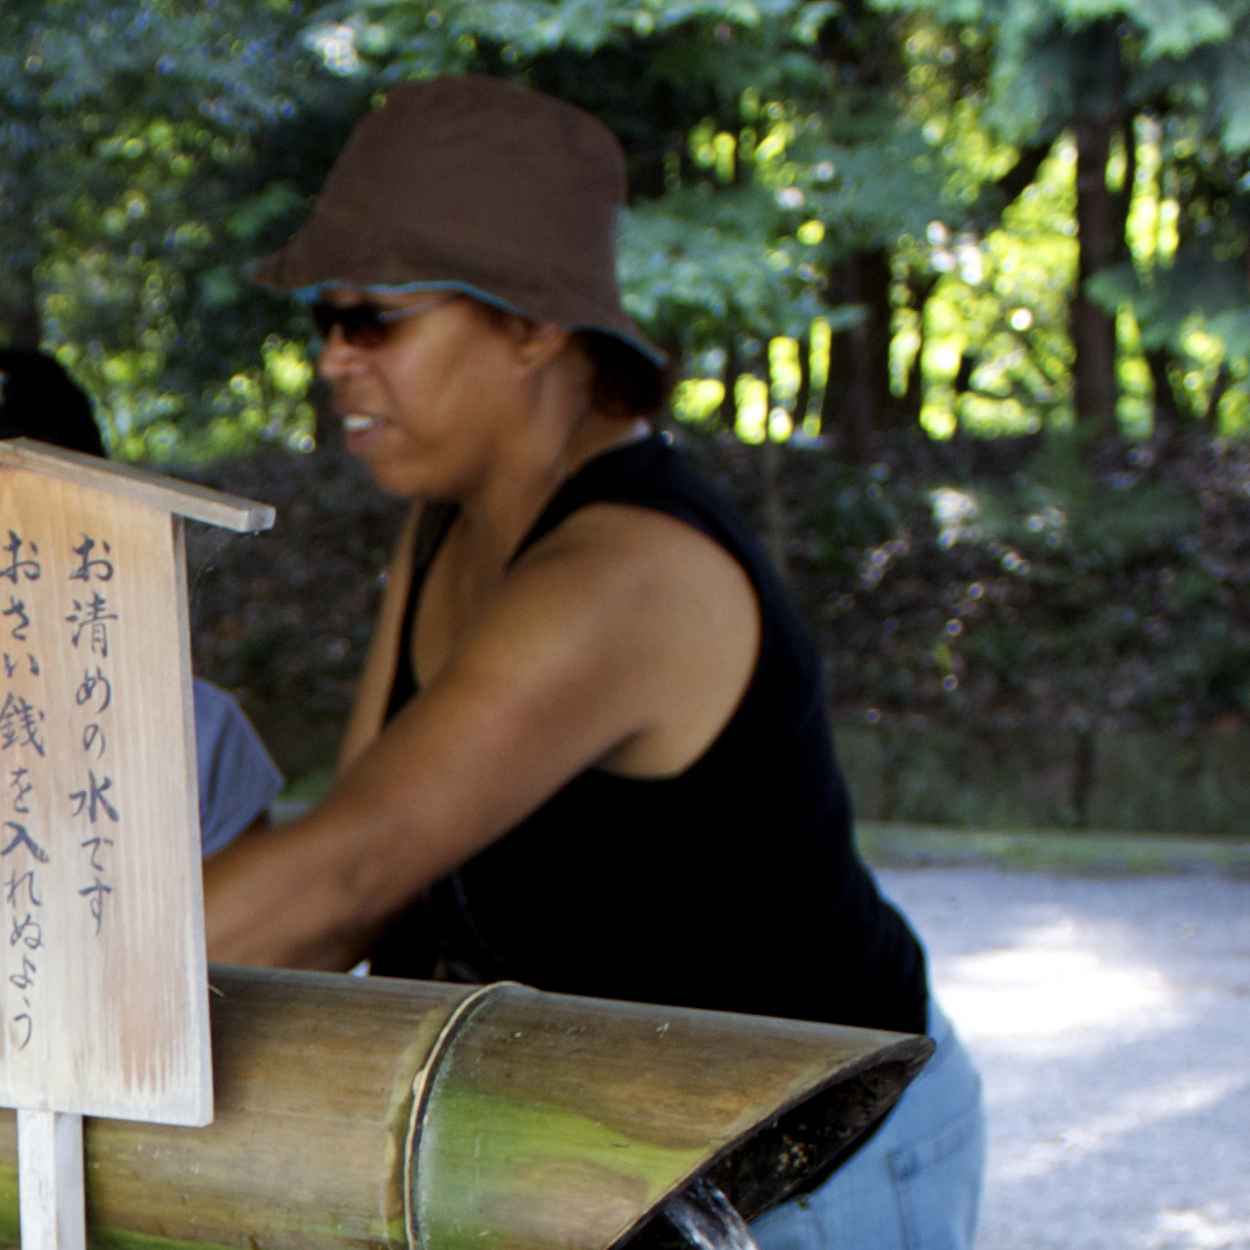 お清めの水です
おさい銭を入れぬよう